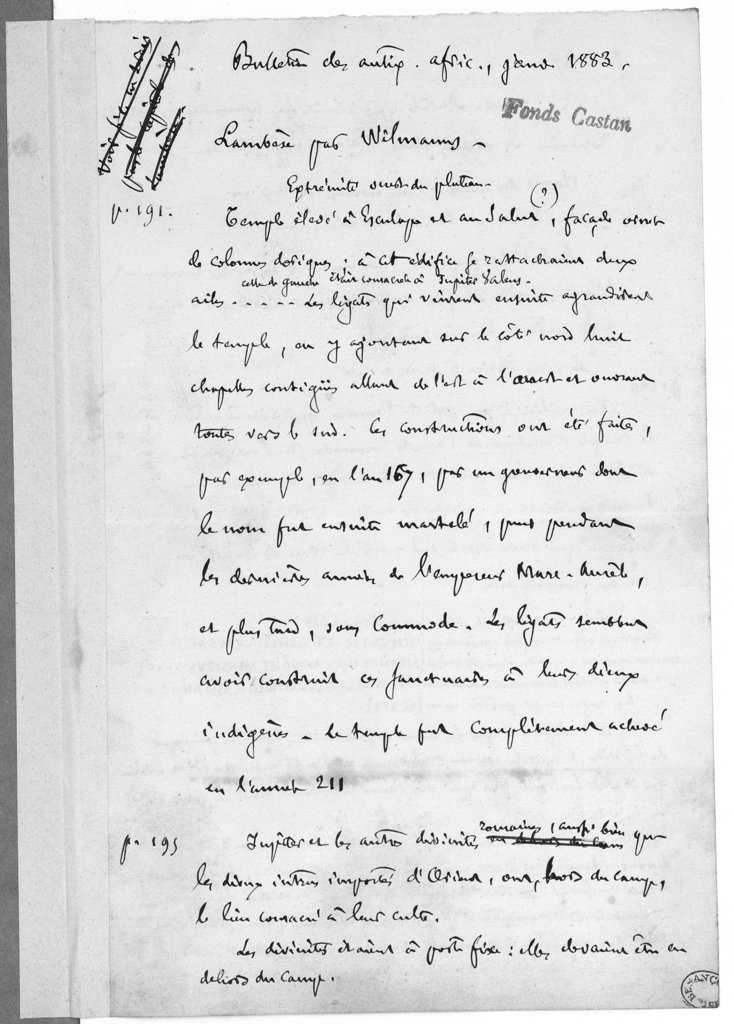 Bulletin des antiq. afric., janv. 1883.
Fonds Castan
Lambèse par Wilmanns.
Extrémité ouest du plateau.
p. 191.
Temple élevé à Esculape et au Salut (?), façade ornée
de colonnes doriques ; à cet édifice se rattachaient deux
celle de gauche était consacrée à Jupiter Valens.
ailes ..... Les légats qui vinrent ensuite agrandirent
le temple, en y ajoutant sur le côté nord huit
chapelles contigües allant de l'est à l'ouest et ouvrant
toutes vers le sud. Ces constructions ont été faites,
par exemple, en l'an 167, par un gouverneur dont
le nom fut ensuite martelé, puis pendant
les dernières années de l'empereur Marc-Aurèle,
et plus tard, sous Commode. Les légats semblent
avoir construit ces sanctuaires à leurs dieux
indigènes. Le temple fut complètement achevé
en l'année 211
p. 195
Jupiter et les autres divinités romaines, aussi bien que
les dieux intrus importés d'Orient, ont, hors du camp,
le lieu consacré à leur culte.
Les divinités étaient à poste fixe : elles devaient être en
dehors du camp.